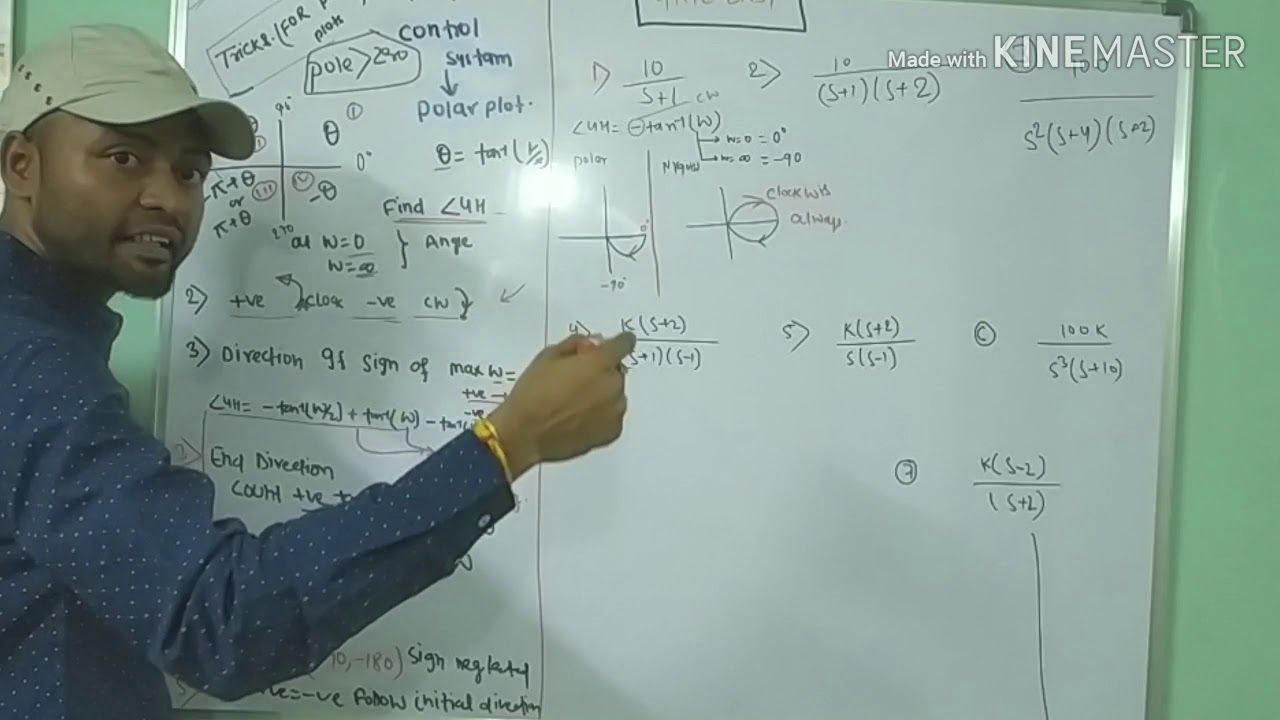 Tricks (FOR
plots
pole > zero
control
system
↓
polar plot.
90°
θ
0°
-π+θ
or
π+θ
-θ
270
θ = tan⁻¹(b/a)
Find ∠GH
at w=0
w=∞
} Ange
2) +ve clock -ve cw
3) Direction 9f sign of max w=
+ve
-ve
∠GH = -tan⁻¹(w/2) + tan⁻¹(w) - tan⁻¹(
End Direction
count +ve
0,-180) sign neglated
-ve follow initial direction
Made with KINEMASTER
1) 10
S+1
cw
∠GH = -tan⁻¹(w)
w=0 = 0°
w=∞ = -90
polar
Nyquist
0°
-90°
clockwis
alway.
2) 10
(S+1)(S+2)
100
S²(S+4)(S+2)
4) K(S+2)
S+1)(S-1)
5) K(S+2)
S(S-1)
6 100K
S³(S+10)
7 K(S-2)
(S+2)